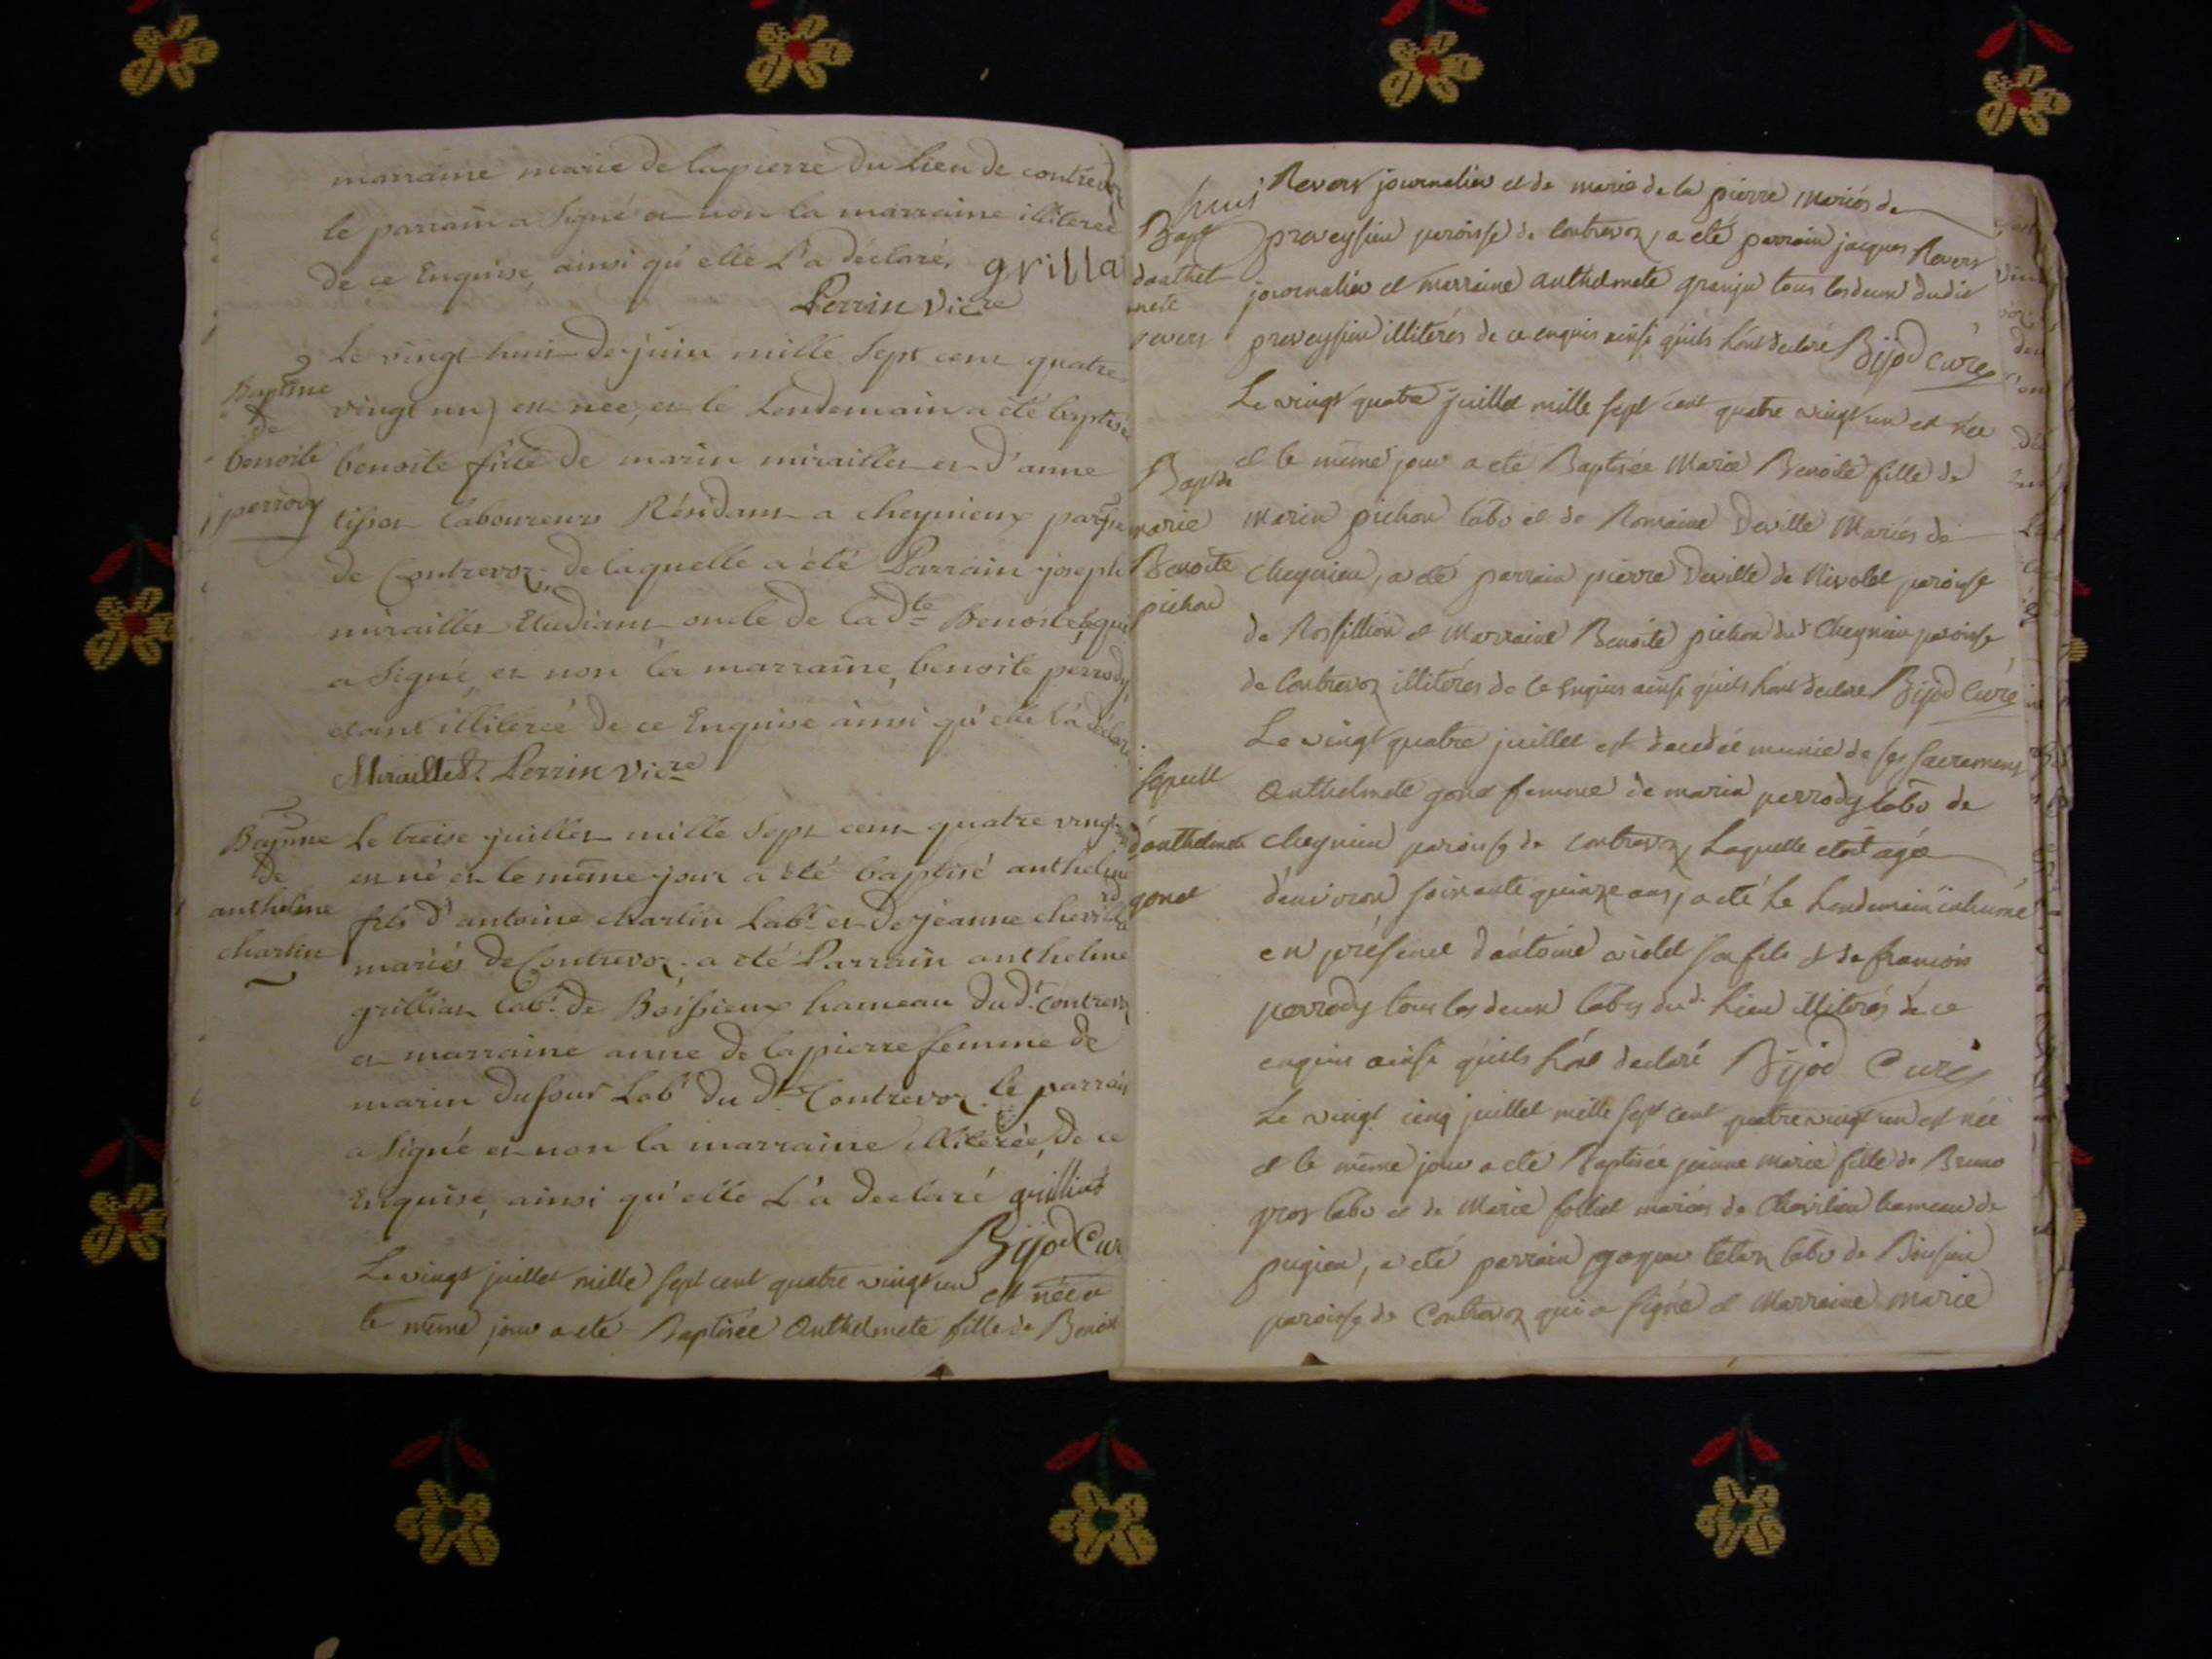 marraine marie de lapierre du Lieu de contrevoz
le parrain a signé et non la marraine illiterée
de ce Enquise, ainsi qu'elle L'a déclaré, grilla
Perrin vicre
Baptme
de
benoite
perrody
Le vingt huit de juin mille sept cent quatre
vingt un est nee, et le Lendemain a été baptisée
benoite fille de marin mirailler et d'anne
tissot laboureurs Résidant a cheynieux parsse
de Contrevoz, de laquelle a été Parrain joseph
mirailler Etudiant oncle de la dte Benoite, qui
a signé et non la marraine, benoite perrody,
etant illiterée de ce Enquise ainsi qu'elle l'a déclaré
Miraillet. Perrin vicre
Baptme
de
anthelme
charlin
Le treise juillet mille sept cent quatre vingt
est né et le même jour a été baptisé anthelme
fils d'antoine charlin Labr et de jeanne
mariés de Contrevoz. a été Parrain anthelme
grillian Labr. de Boissieux hameau dud. Contrevoz
et marraine anne de lapierre femme de
marin dufour Labr du dt Contrevoz. le parrain
a signé et non la marraine illiterée, de ce
Enquise, ainsi qu'elle L'a declaré
Bijod Cur
Le vingt juillet mille sept cent quatre vingt un est née et
le même jour a été Baptisée Anthelmete fille de Benoit
Bapt
danthel
mete
revers
Revers journalier et de marie de la pierre mariés de
preveyssieu paroisse de Contrevoz, a eté parrain jacques Revers
journalier et marraine anthelmete granju tous les deux dudit
preveyssieu illiterés de ce enquis ainsi quils hont declaré Bijod Curé
Bapt de
marie
Benoite
pichon
Le vingt quatre juillet mille sept cent quatre vingt un est née
et le même jour a eté Baptisée Marie Benoite fille de
Marin pichon labr et de Romaine Deville Mariés de
Cheynieu, a eté parrain pierre Deville de Nivolet paroisse
de Rossillion et Marraine Benoite pichon dud Cheynieu paroisse
de Contrevoz illiterés de ce Enquis ainsi quils hont declaré Bijod Curé
sepult
d'anthelmete
gonet
Le vingt quatre juillet est decedée munie de ses sacrements
Anthelmete gonet femme de marin perrody labr de
Cheynieu paroisse de Contrevoz, Laquelle etoit agée
denviron soixante quinze ans, a eté le Lendemain inhumé
en présence dantoine violet son fils et de francois
perrody tous les deux labrs dud. Lieu illiterés de ce
enquis ainsi quils hont declaré Bijod Curé
Le vingt cinq juillet mille sept cent quatre vingt un est née
et le même jour a eté Baptisée jeanne Marie fille de Bruno
gros labr et de Marie follet mariés de hameau de
pugieu, a eté parrain labr de Boissieu
paroisse de Contrevoz qui a signé et Marraine Marie